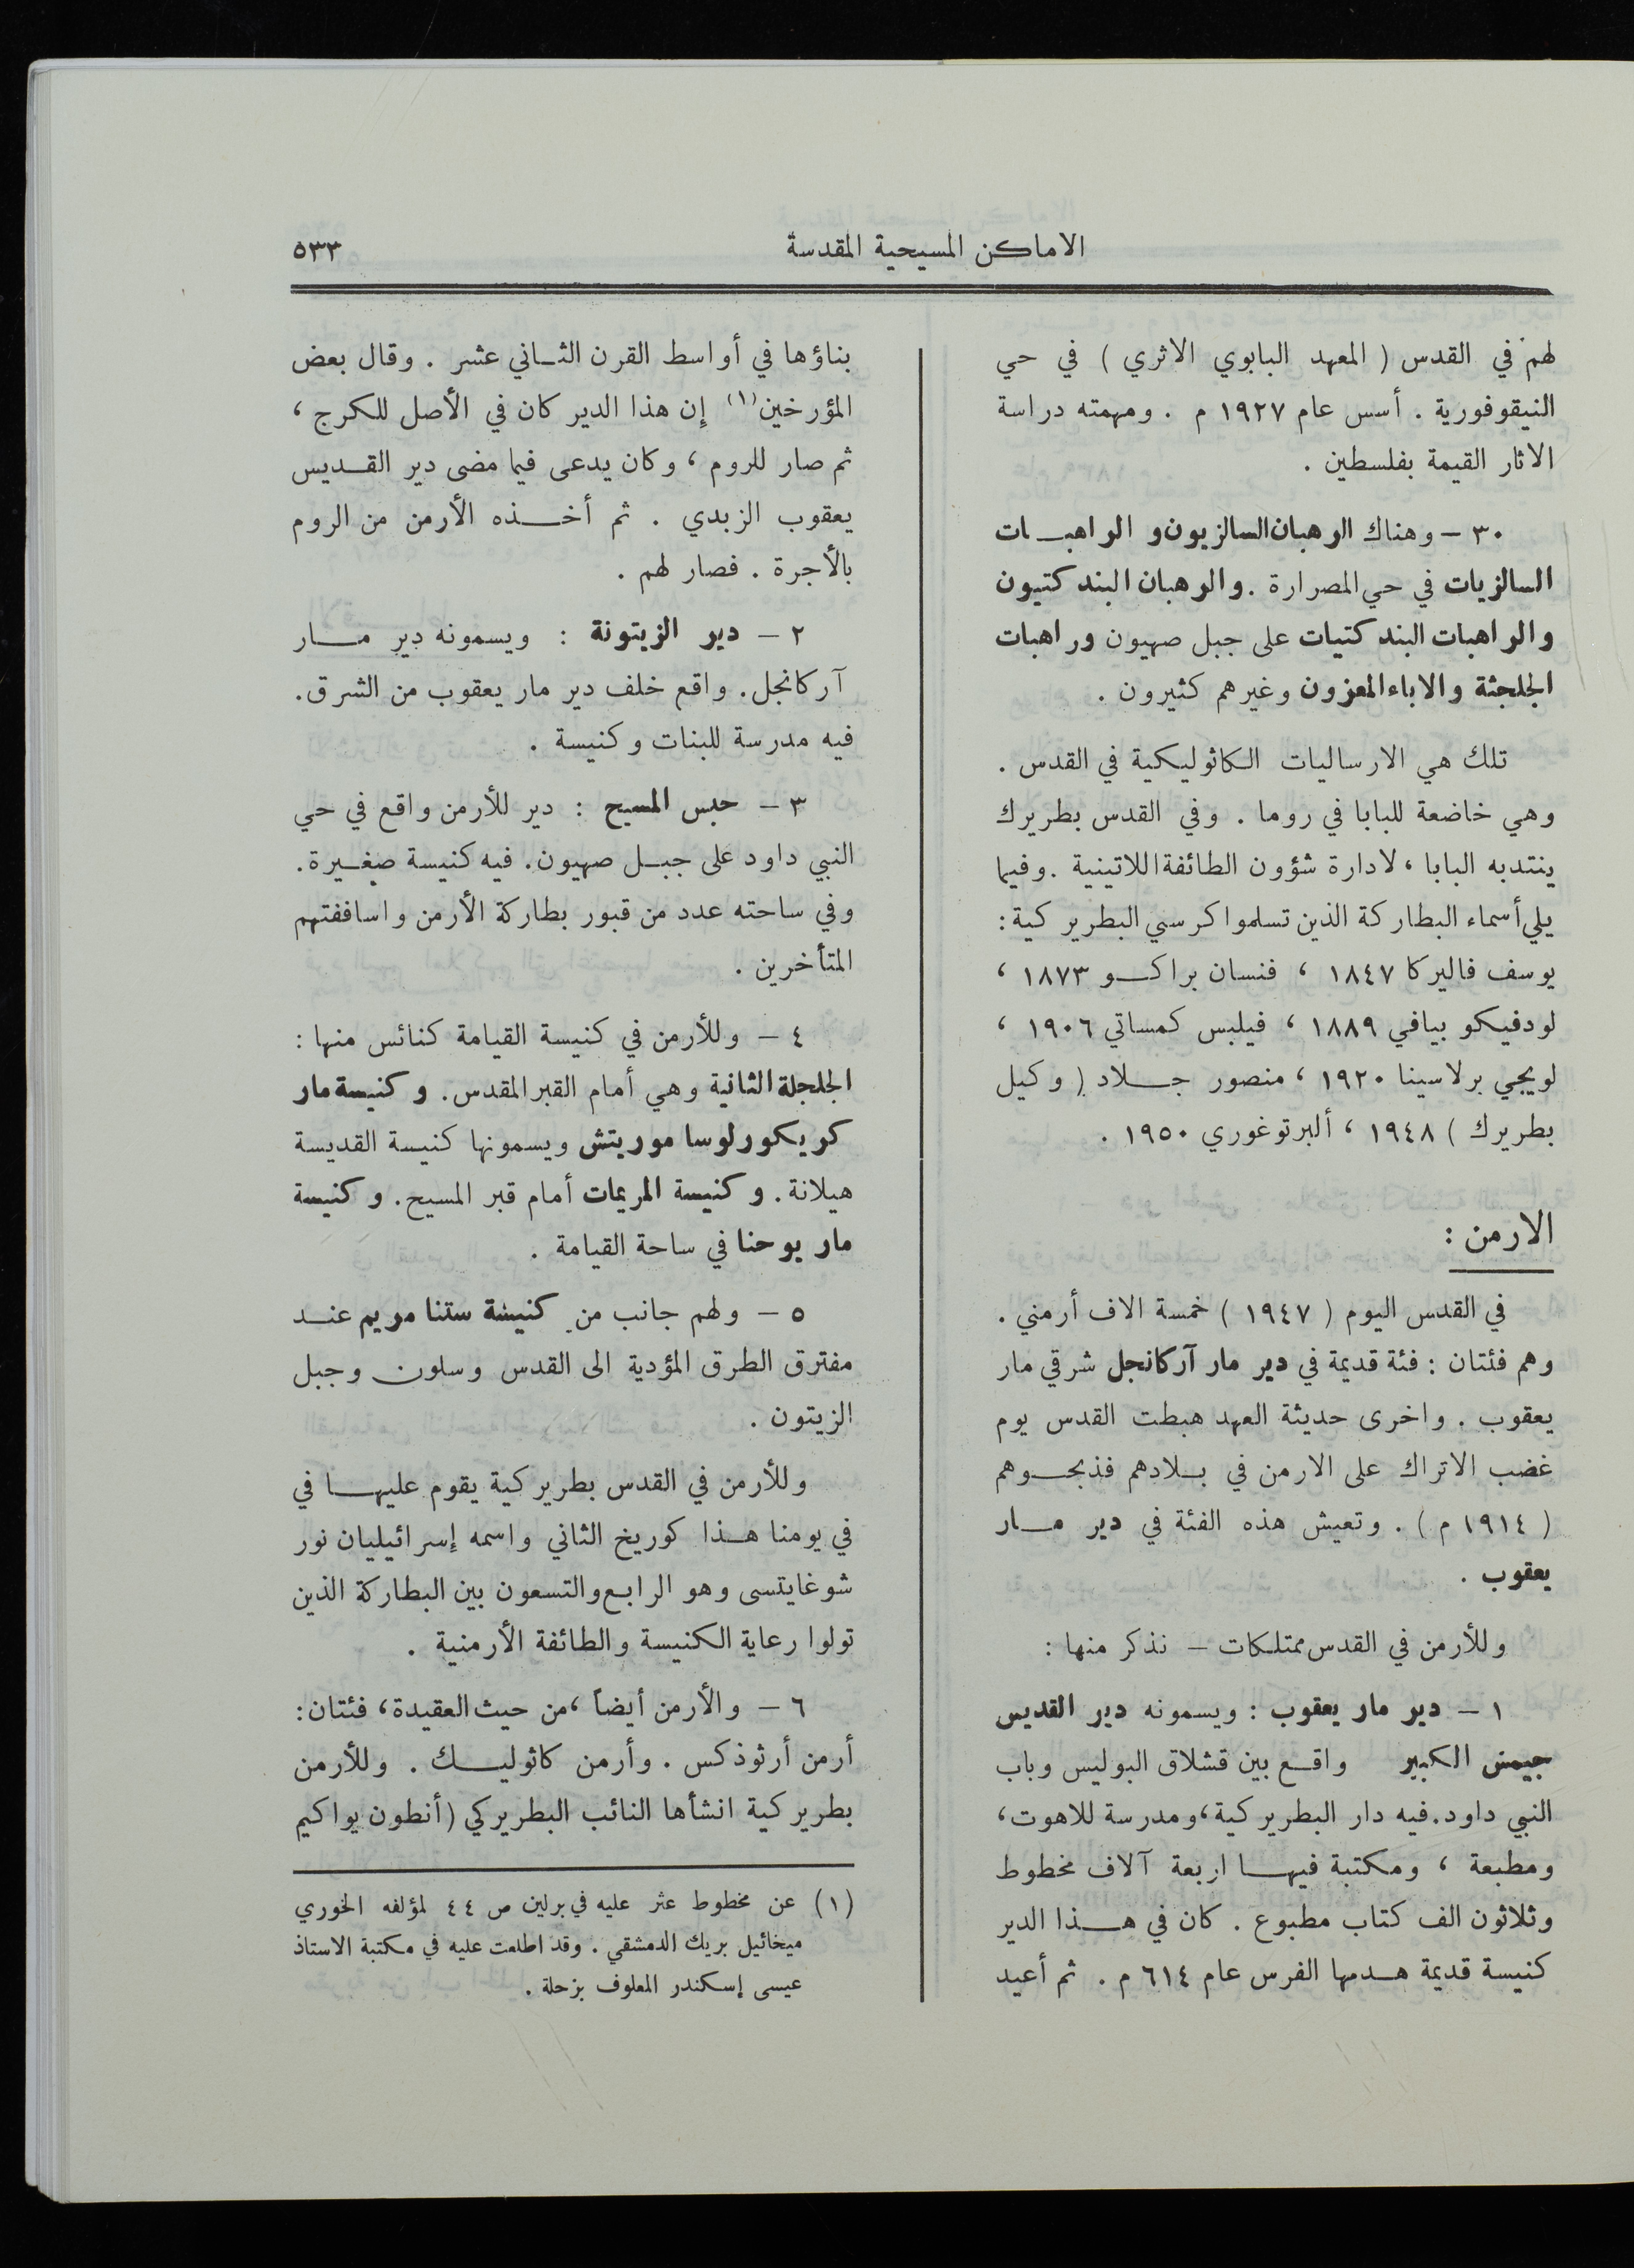 الاماكن المسيحية المقدسة
٥٣٣
لهم في القدس ( المعهد البابوي الاثري ) في حي
النيقوفورية . أسس عام ١٩٢٧ م . ومهمته دراسة
الاثار القيمة بفلسطين .
٣٠ – وهناك الرهبان السالزيون و الراهبات
السالزيات في حي المصرارة . والرهبان البندكتيون
والراهبات البندكتيات على جبل صهيون وراهبات
الجلجثة والاباء المعزون وغيرهم كثيرون .
تلك هي الارساليات الكاثوليكية في القدس .
وهي خاضعة للبابا في روما . وفي القدس بطريرك
ينتدبه البابا ، لادارة شؤون الطائفة اللاتينية . وفيما
يلي أسماء البطاركة الذين تسلموا كرسي البطريركية :
يوسف فاليركا ١٨٤٧ ، فنسان براكو ١٨٧٣ ،
لودفيكو بيافي ١٨٨٩ ، فيلبس كمساتي ١٩٠٦ ،
لويجي برلاسينا ١٩٢٠ ، منصور جلاد ( وكيل
بطريرك ) ١٩٤٨ ، ألبرتو غوري ١٩٥٠ .
الارمن :
في القدس اليوم ( ١٩٤٧ ) خمسة الاف أرمني .
وهم فئتان : فئة قديمة في دير مار آركانجل شرقي مار
يعقوب . واخرى حديثة العهد هبطت القدس يوم
غضب الاتراك على الارمن في بلادهم فذبحوهم
( ١٩١٤ م ) . وتعيش هذه الفئة في دير مار
يعقوب .
وللأرمن في القدس ممتلكات – نذكر منها :
١ – دير مار يعقوب : ويسمونه دير القديس
جيمس الكبير واقع بين قشلاق البوليس وباب
النبي داود . فيه دار البطريركية ، ومدرسة للاهوت ،
ومطبعة ، ومكتبة فيها اربعة آلاف مخطوط
وثلاثون الف كتاب مطبوع . كان في هذا الدير
كنيسة قديمة هدمها الفرس عام ٦١٤ م . ثم أعيد
بناؤها في أواسط القرن الثاني عشر . وقال بعض
المؤرخين (١) إن هذا الدير كان في الأصل للكرج ،
ثم صار للروم ، وكان يدعى فيما مضى دير القديس
يعقوب الزبدي . ثم أخذه الأرمن من الروم
بالأجرة . فصار لهم .
٢ – دير الزيتونة : ويسمونه دير مار
آركانجل . واقع خلف دير مار يعقوب من الشرق .
فيه مدرسة للبنات وكنيسة .
٣ – حبس المسيح : دير للأرمن واقع في حي
النبي داود على جبل صهيون . فيه كنيسة صغيرة .
وفي ساحته عدد من قبور بطاركة الأرمن واساففتهم
المتأخرين .
٤ – وللأرمن في كنيسة القيامة كنائس منها :
الجلجلة الثانية وهي أمام القبر المقدس . وكنيسة مار
كريكورلوسا موريتش ويسمونها كنيسة القديسة
هيلانة . وكنيسة المريمات أمام قبر المسيح . وكنيسة
مار يوحنا في ساحة القيامة .
٥ – ولهم جانب من كنيسة ستنا مريم عند
مفترق الطرق المؤدية الى القدس وسلون وجبل
الزيتون .
وللأرمن في القدس بطريركية يقوم عليها في
في يومنا هذا كوريخ الثاني واسمه إسرائيليان نور
شوغايتسى وهو الرابع والتسعون بين البطاركة الذين
تولوا رعاية الكنيسة والطائفة الأرمنية .
٦ – والأرمن أيضاً ، من حيث العقيدة ، فئتان :
أرمن أرثوذكس . وأرمن كاثوليك . وللأرمن
بطريركية انشأها النائب البطريركي ( أنطون يواكيم
(١) عن مخطوط عثر عليه في برلين ص ٤٤ لمؤلفه الخوري
ميخائيل بريك الدمشقي . وقد اطلعت عليه في مكتبة الاستاذ
عيسى إسكندر المعلوف بزحلة .